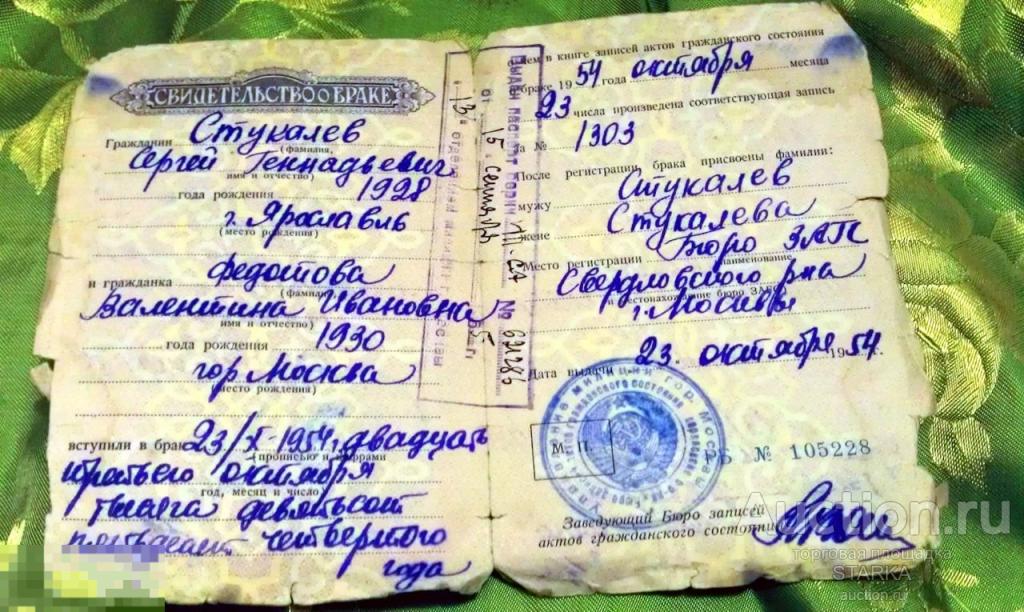 СВИДЕТЕЛЬСТВО О БРАКЕ
Гражданин Стукалев
(фамилия,
Сергей Геннадьевич
имя и отчество)
года рождения 1928
г. Ярославль
(место рождения)
и гражданка Федотова
Валентина Ивановна
имя и отчество)
года рождения 1930
гор Москва
(место рождения)
вступили в брак 23/X-1954г, двадцать
(прописью и цифрами
третьего октября
год, месяц и число)
тысяча девятьсот
пятьдесят четвертого
года
чем в книге записей актов гражданского состояния
о браке 1954 года октября месяца
23 числа произведена соответствующая запись
за № 1303
После регистрации брака присвоены фамилии:
мужу Стукалев
жене Стукалева
Место регистрации Бюро ЗАГС
наименование
Свердловского р-на
г. Москвы
Дата выдачи 23. октября 1954.
М. П.
РБ № 105228
Заведующий Бюро записей
актов гражданского состояния
Выдан паспорт серии № 621286
от 15 сентября 55 г.
13 отделением милиции г. Москвы
Auction.ru
торговая площадка
STARKA
auction.ru